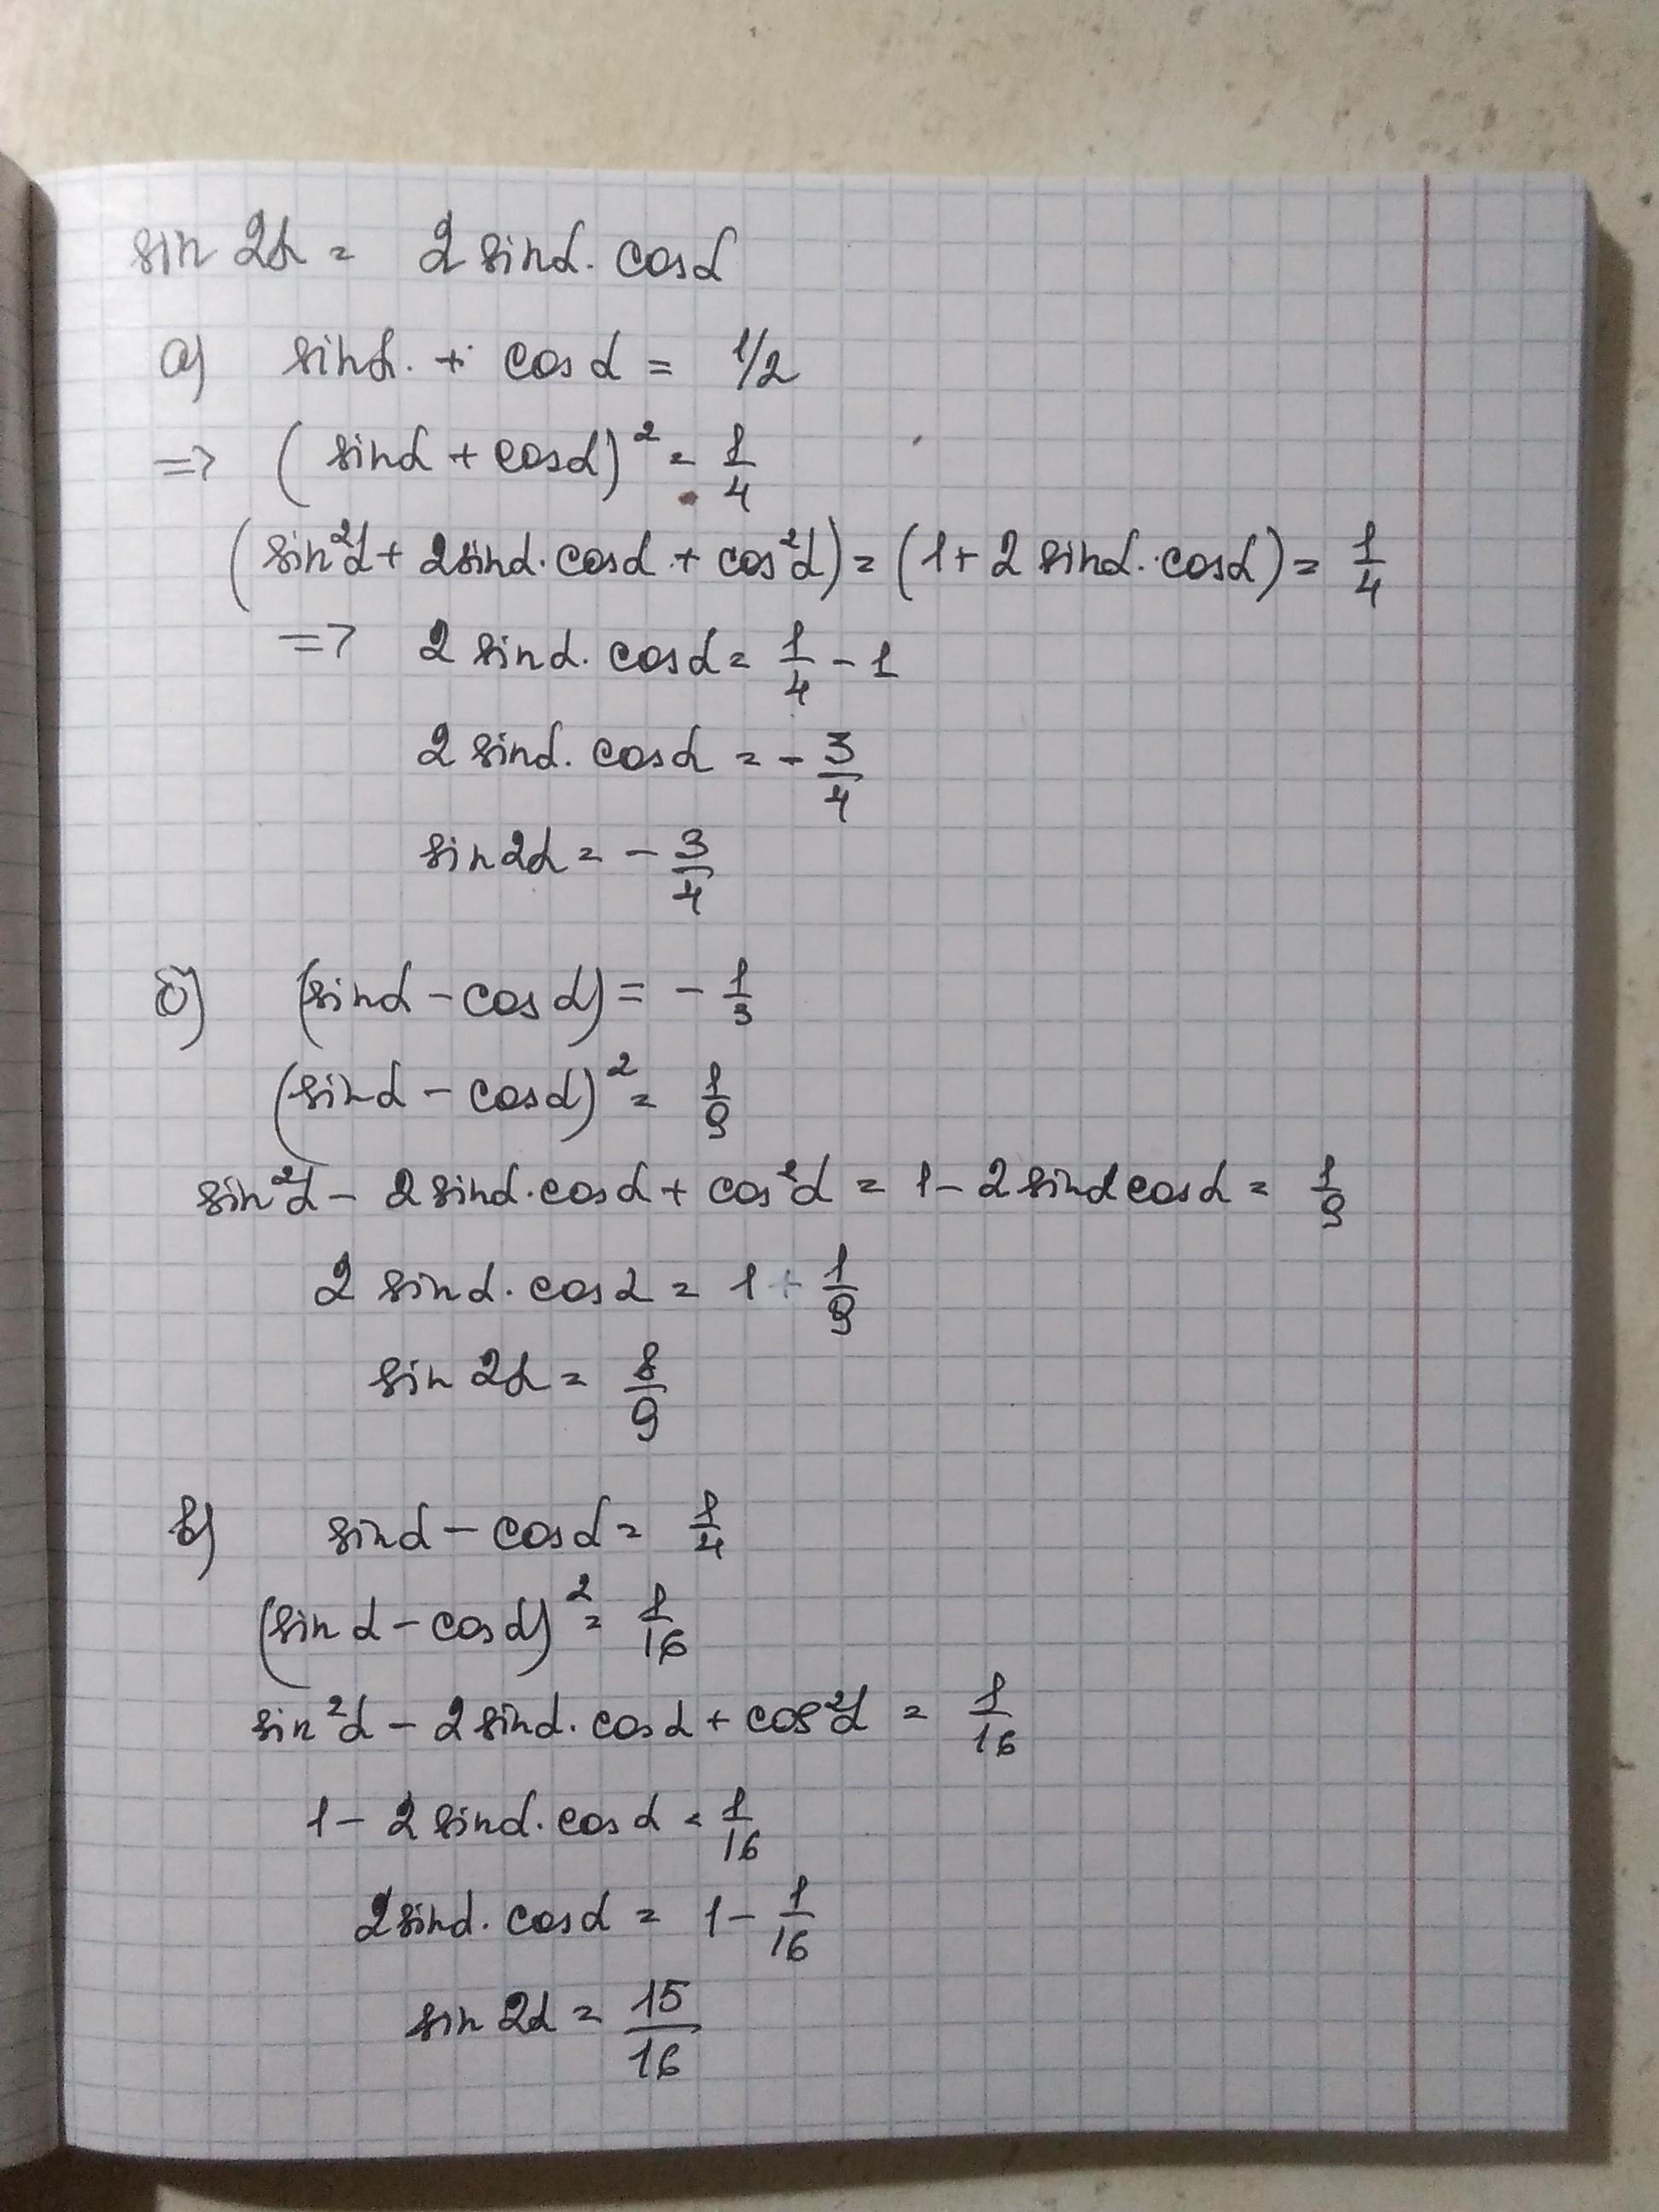 sin 2α = 2 sinα · cosα
а) sinα + cosα = 1/2
=> (sinα + cosα)² = 1/4
(sin²α + 2sinα·cosα + cos²α) = (1 + 2 sinα·cosα) = 1/4
=> 2 sinα·cosα = 1/4 - 1
2 sinα·cosα = - 3/4
sin2α = - 3/4
б) (sinα - cosα) = - 1/3
(sinα - cosα)² = 1/9
sin²α - 2sinα·cosα + cos²α = 1 - 2sinαcosα = 1/9
2 sinα·cosα = 1 + 1/9
sin 2α = 8/9
в) sinα - cosα = 1/4
(sinα - cosα)² = 1/16
sin²α - 2sinα·cosα + cos²α = 1/16
1 - 2sinα·cosα = 1/16
2sinα·cosα = 1 - 1/16
sin 2α = 15/16